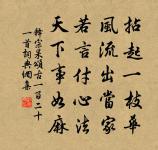 拈起一枝華
風流出當家
若言付心法
天下事如麻
釋宗杲頌古一百二十
一首詞典網集